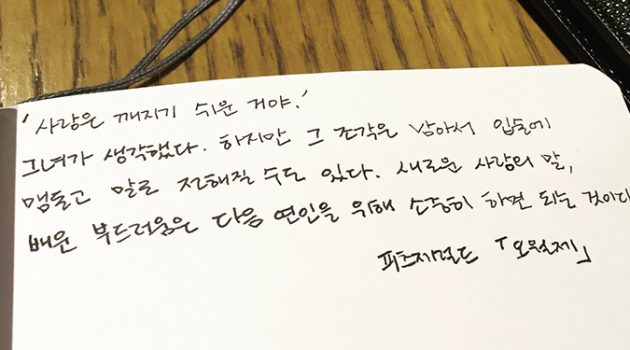 '사랑은 깨지기 쉬운 거야.'
그녀가 생각했다. 하지만 그 조각은 남아서 입술에
맴돌고 말로 전해질 수도 있다. 새로운 사랑의 말,
배운 부드러움은 다음 연인을 위해 소중히 하면 되는 것이다
피츠제럴드 「오월제」